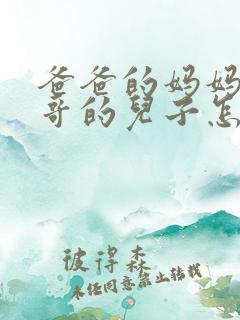 爸爸的妈妈
哥的兒子怎
彼得森
未任同意禁止转载